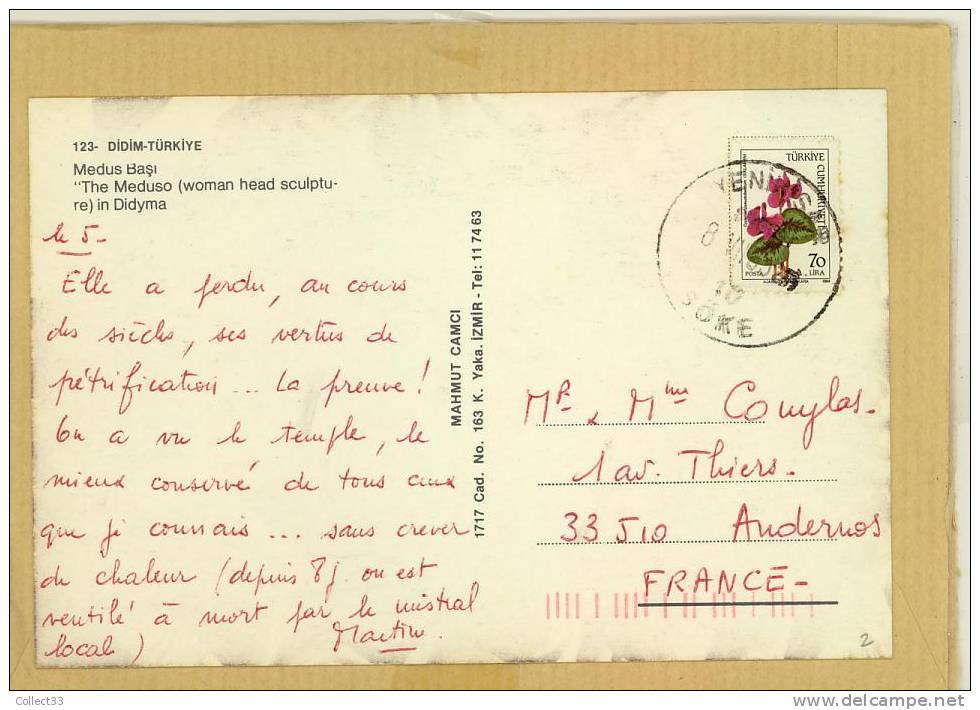 123- DİDİM-TÜRKİYE
Medus Başı
"The Meduso (woman head sculptu-
re) in Didyma
le 5-
Elle a perdu, au cours
des siècles, ses vertus de
pétrification... La preuve!
On a vu le temple, le
mieux conservé de tous ceux
que je connais... sans crever
de chaleur (depuis 8j. on est
ventilé à mort par le mistral
local)
Martine.
MAHMUT CAMCI
1717 Cad. No. 163 K. Yaka. İZMİR - Tel: 11 74 63
TÜRKİYE
CUMHURİYETİ
70
LİRA
POSTA
SÖKE
Mr & Mme Couylas-
1 av. Thiers-
33 510 Andernos
FRANCE-
2
Collect33
www.delcampe.net